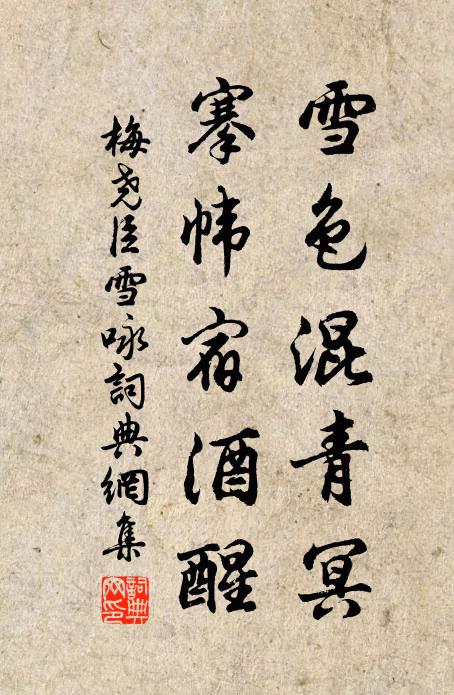 雪色混青冥
搴帏宿酒醒
梅尧臣雪咏詞典網集
詞典
网印